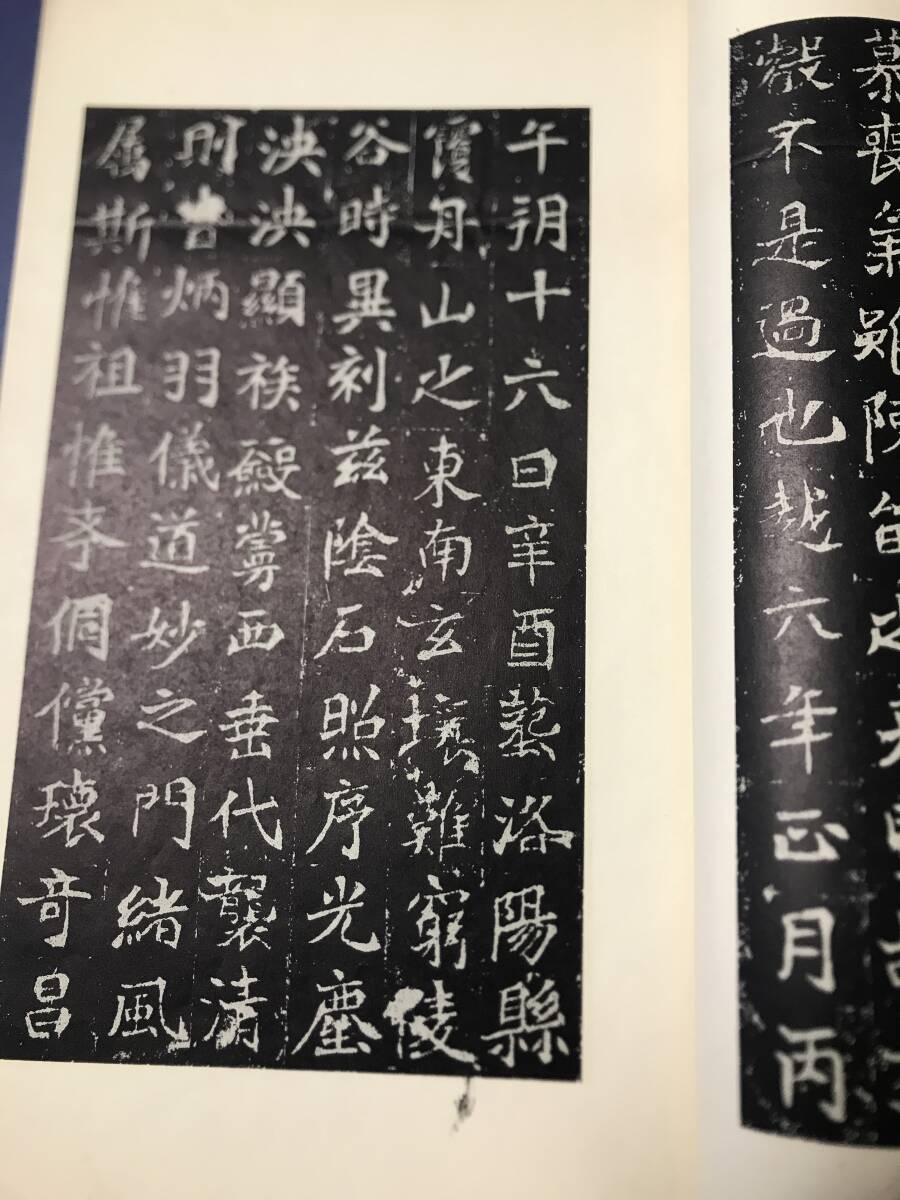 慕喪雖陳留之
不是過也越六年正月丙
午朔十六日辛酉葬洛陽縣
覆舟山之東南玄壤難窮陵
谷時異刻茲陰石照序光塵
泱泱顯族西垂代襲清
則炳羽儀道妙之門緒風
属斯惟祖惟孝倜儻瓌奇昌